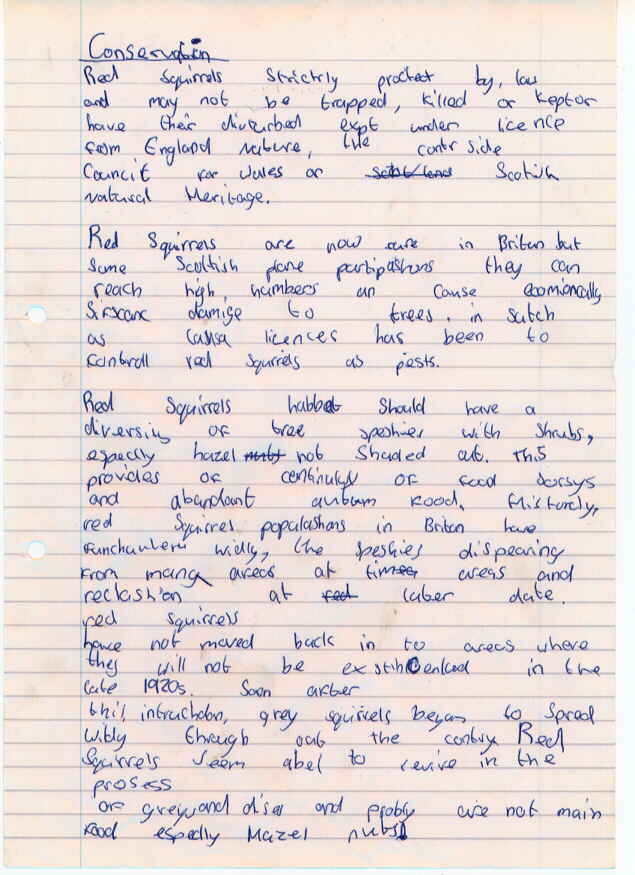 Conservation
Red Squirrels Strictrly proctet by, law
and may not be trapped, killed or keptor
have their divturbed exept under licence
from England nature, the contr side
Council for wales or Scotish
natural Heritage.
Red Squirrels are now rare in Briten but
Some Scottish plane partipashons they can
reach high, numbers an Cause
damige to trees. in sutch
as Causa licences has been to
Kontroll red squirrels as pests.
Red Squirrels habbat Should have a
diversity of tree speshies with Shrubs,
especlly hazel nuts not Shaded out. This
provides of continuly of food
and abandant autum food. Histurdy,
red Squirrels populashons in Briton have
widly, the speshies dispearing
from many areas at times areas and
at red later date.
red squirrels
have not moved back in to areas where
they will not be in the
late 1920s. Soon after
this, grey squirrels began to Spread
widly through out the contry Red
Squirrels Seem abel to revive in the
prosess
of grey and and probly are not main
food espedly Hazel nuts